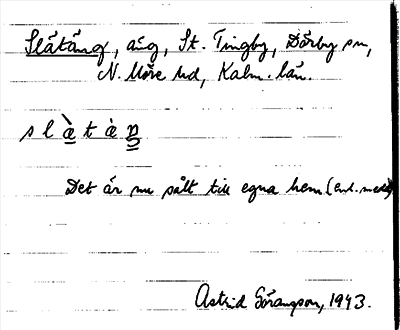 Slätäng, äng, St. Tingby, Dörby sn,
N. Möre hd, Kalm. län.
slàtàŋ
Det är nu sålt till egna hem (enl. medd)
Astrid Göransson, 1943.